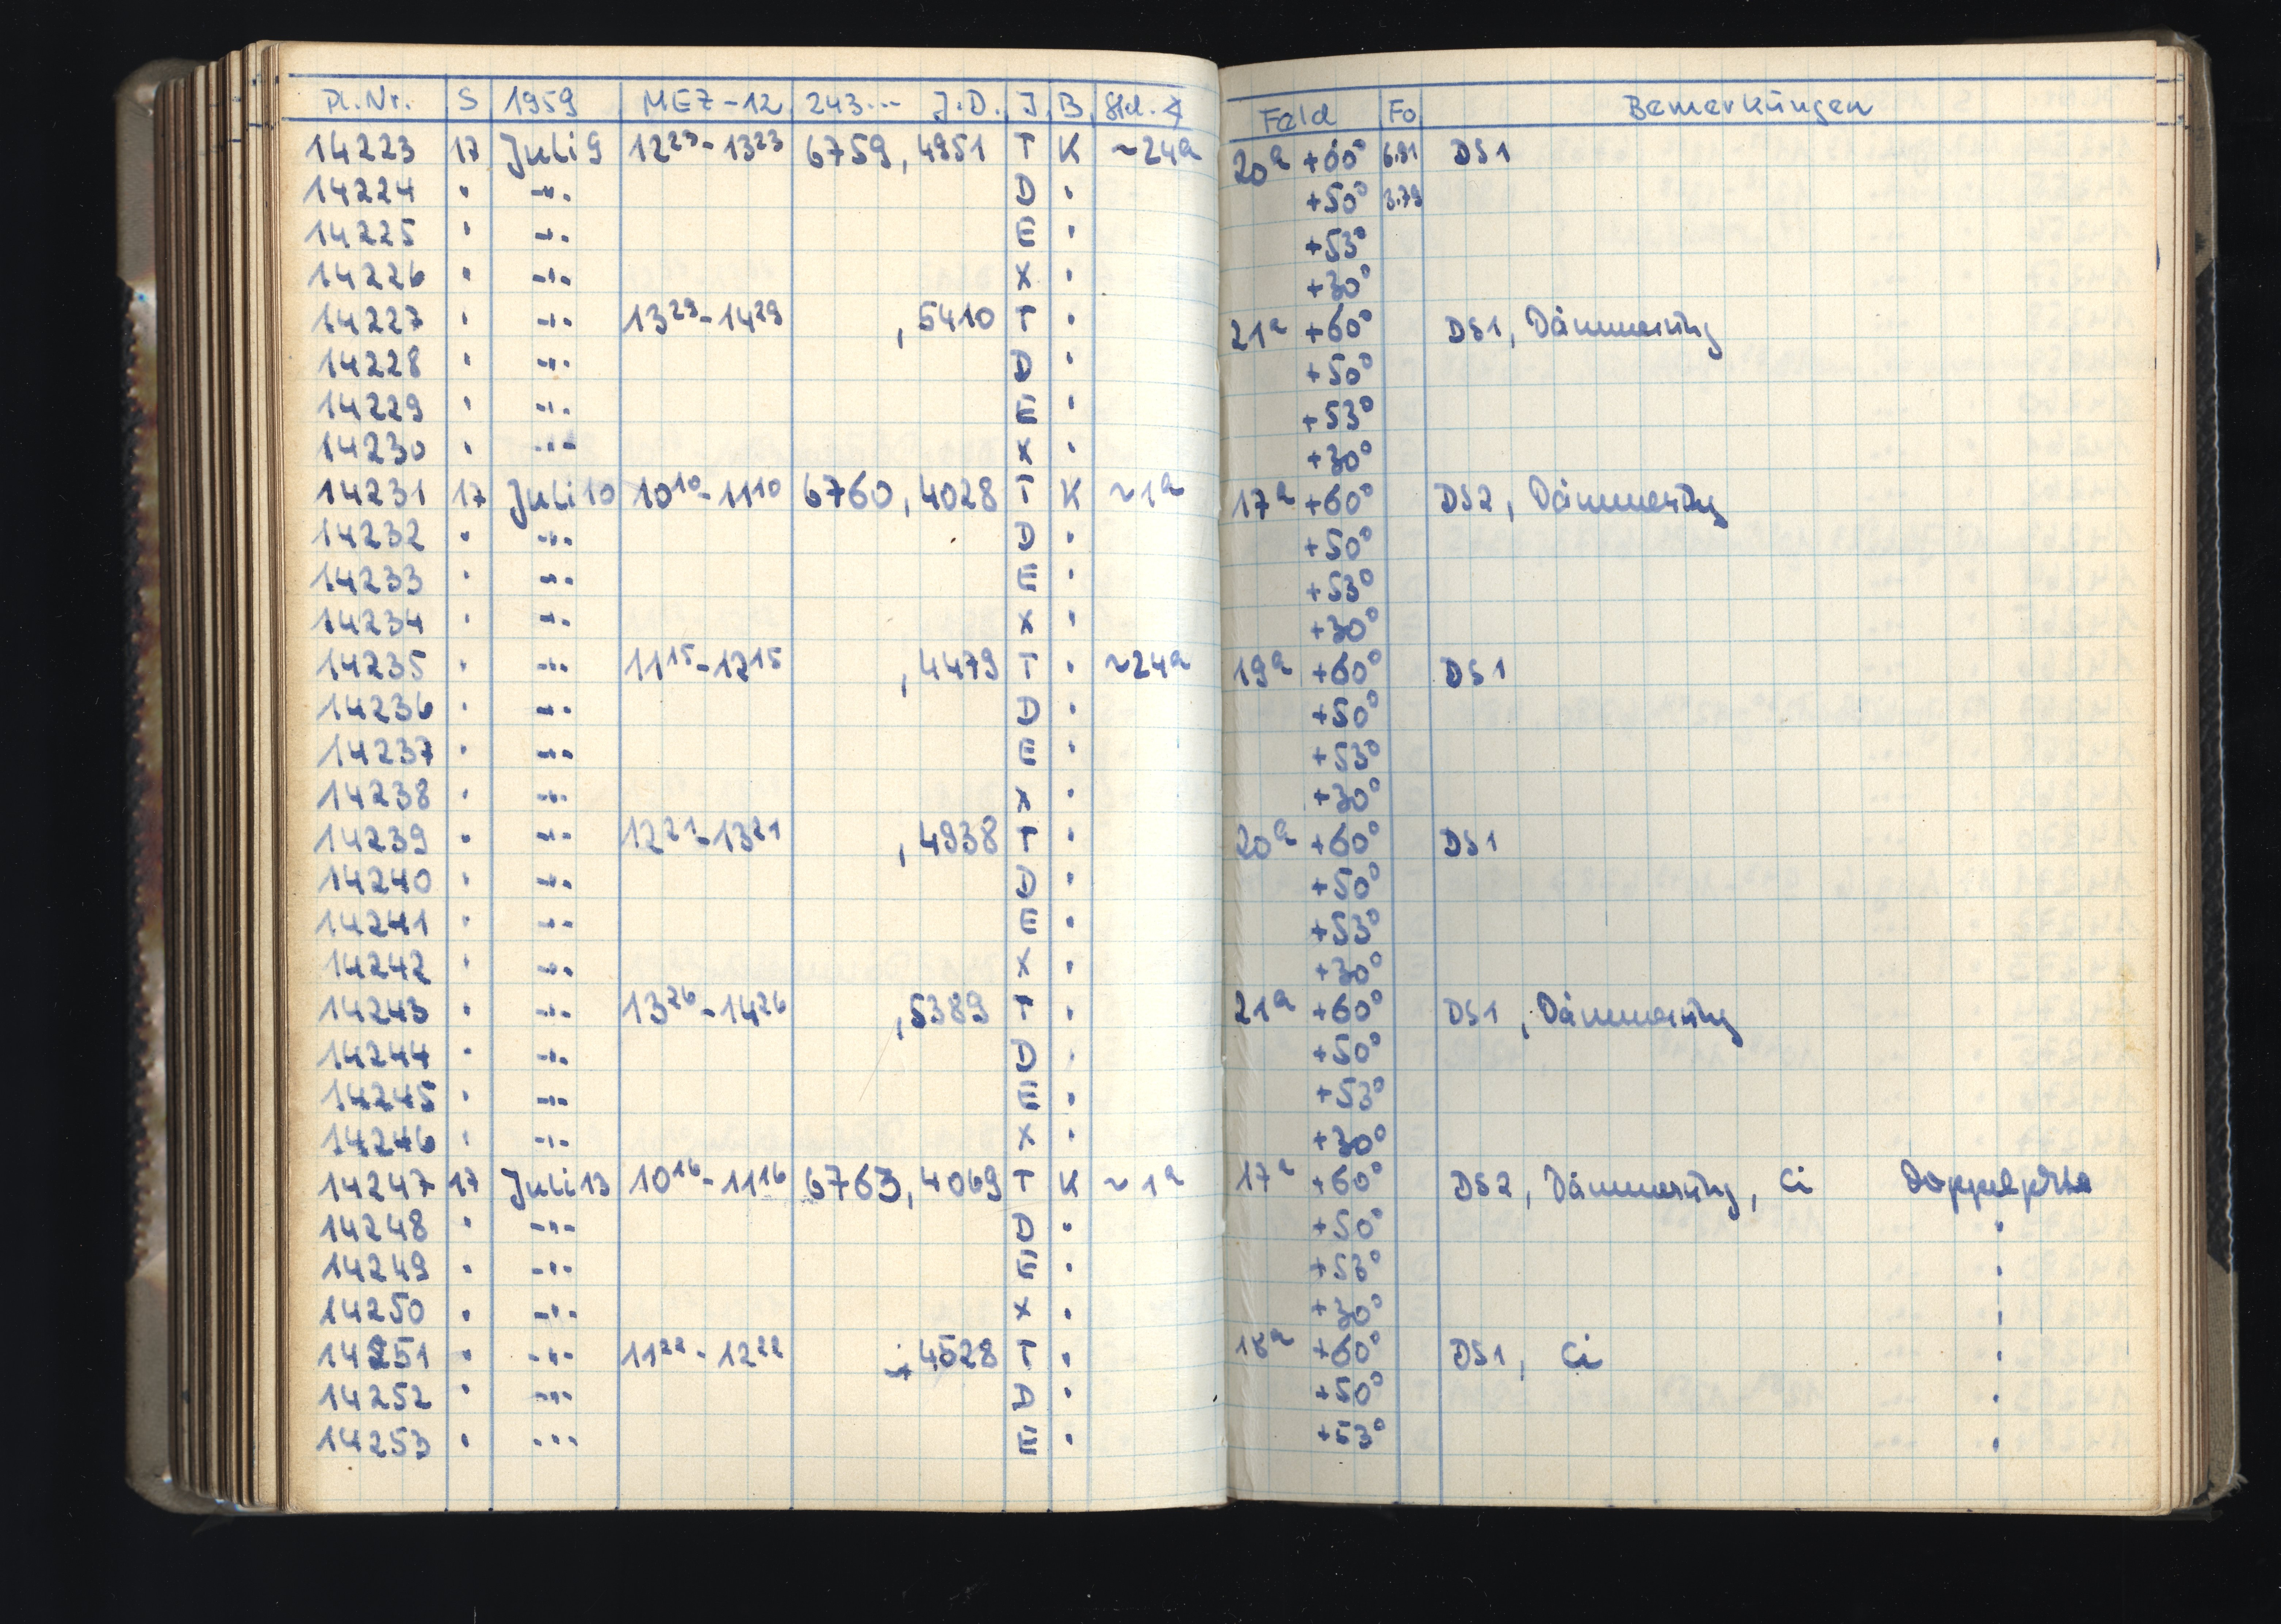 Pl.Nr. S 1959 MEZ-12 243... J.D. J B Std.∢ Feld Fo Bemerkungen
14223 17 Juli 9 12²³-13²³ 6759,4951 T K ~24ʰ 20ʰ +60° 6.91 DS1
14224 " -"- D " +50° 3.79
14225 " -"- E " +53°
14226 " -"- X " +30°
14227 " -"- 13²⁹-14²⁹ ,5410 T " 21ʰ +60° DS1, Dämmerung
14228 " -"- D " +50°
14229 " -"- E " +53°
14230 " -"- X " +30°
14231 17 Juli 10 10¹⁰-11¹⁰ 6760,4028 T K ~1ʰ 17ʰ +60° DS2, Dämmerung
14232 " -"- D " +50°
14233 " -"- E " +53°
14234 " -"- X " +30°
14235 " -"- 11¹⁵-12¹⁵ ,4479 T " ~24ʰ 19ʰ +60° DS1
14236 " -"- D " +50°
14237 " -"- E " +53°
14238 " -"- X " +30°
14239 " -"- 12²¹-13²¹ ,4938 T " 20ʰ +60° DS1
14240 " -"- D " +50°
14241 " -"- E " +53°
14242 " -"- X " +30°
14243 " -"- 13²⁶-14²⁶ ,5389 T " 21ʰ +60° DS1, Dämmerung
14244 " -"- D " +50°
14245 " -"- E " +53°
14246 " -"- X " +30°
14247 17 Juli 13 10¹⁶-11¹⁶ 6763,4069 T K ~1ʰ 17ʰ +60° DS2, Dämmerung, Ci
14248 " -"- D " +50° "
14249 " -"- E " +53° "
14250 " -"- X " +30° "
14251 " -"- 11²²-12²² ,4528 T " 18ʰ +60° DS1, Ci "
14252 " -"- D " +50° "
14253 " -"- E " +53° "